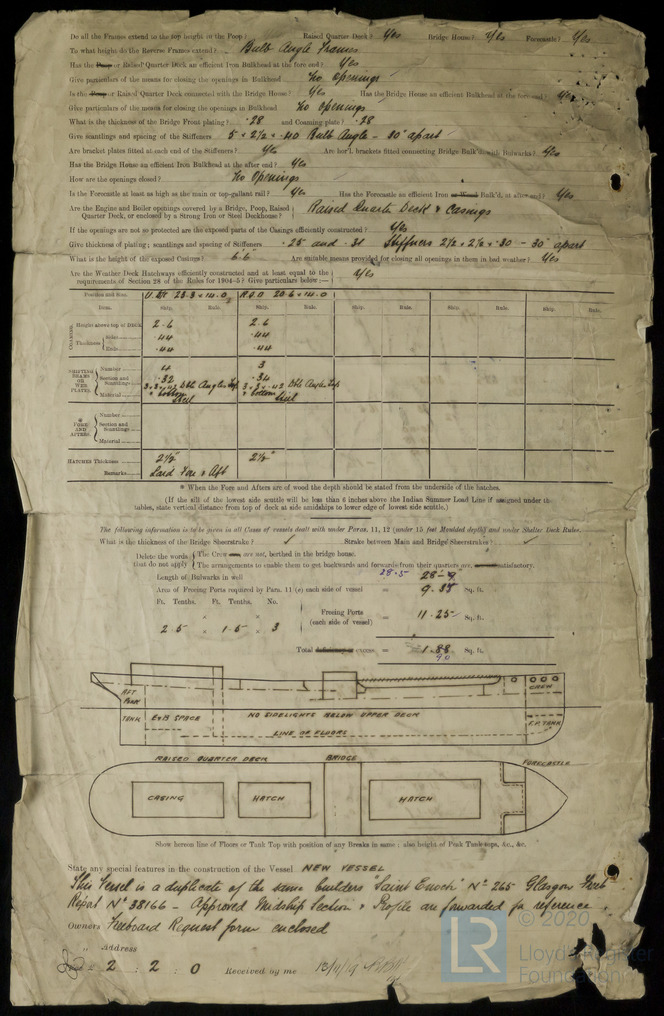 Do all the Frames extend to the top height in the Poop? Raised Quarter Deck? Yes Bridge House? Yes Forecastle? Yes
To what height do the Reverse Frames extend? Bulb Angle Frames
Has the Poop or Raised Quarter Deck an efficient Iron Bulkhead at the fore end? Yes
Give particulars of the means for closing the openings in Bulkhead No Openings
Is the Poop or Raised Quarter Deck connected with the Bridge House? Yes Has the Bridge House an efficient Bulkhead at the fore end? Yes
Give particulars of the means for closing the openings in Bulkhead No Openings
What is the thickness of the Bridge Front plating? .28 and Coaming plate? .28
Give scantlings and spacing of the Stiffeners 5 x 2½ x .40 Bulb Angle - 30" apart
Are bracket plates fitted at each end of the Stiffeners? Yes Are hor'l brackets fitted connecting Bridge Bulk'd with Bulwarks? Yes
Has the Bridge House an efficient Iron Bulkhead at the after end? Yes
How are the openings closed? No Openings
Is the Forecastle at least as high as the main or top-gallant rail? Yes Has the Forecastle an efficient Iron or Wood Bulk'd, at after end? Yes
Are the Engine and Boiler openings covered by a Bridge, Poop, Raised Quarter Deck, or enclosed by a Strong Iron or Steel Deckhouse? Raised Quarter Deck & Casings
If the openings are not so protected are the exposed parts of the Casings efficiently constructed? Yes
Give thickness of plating; scantlings and spacing of Stiffeners .25 and .31 Stiffners 2½ x 2½ x .30 - 30" apart
What is the height of the exposed Casings? 6.6 Are suitable means provided for closing all openings in them in bad weather? Yes
Are the Weather Deck Hatchways efficiently constructed and at least equal to the
requirements of Section 28 of the Rules for 1904-5? Give particulars below:— Yes
Position and Size. 23.3 x 14.0 R.Q.D 20.6 x 14.0
Item. Ship. Rule. Ship. Rule. Ship. Rule. Ship. Rule. Ship. Rule.
COAMING Height above top of Deck 2.6 2.6
Thickness Sides .44 .44
Ends .44 .44
SHIFTING BEAMS OR WEB PLATES Number 4 3
Section and Scantlings .32 .34
3 x 3 x .42 Dble Angles Top & bottom 3 x 3 x .42 Dble Angles Top & bottom
Material Steel Steel
* FORE AND AFTERS. Number
Section and Scantlings
Material
HATCHES Thickness 2½" 2½"
Remarks Laid Fore & Aft
* When the Fore and Afters are of wood the depth should be stated from the underside of the hatches.
(If the sill of the lowest side scuttle will be less than 6 inches above the Indian Summer Load Line if assigned under the
tables, state vertical distance from top of deck at side amidships to lower edge of lowest side scuttle.)
The following information is to be given in all Cases of vessels dealt with under Paras. 11, 12 (under 15 feet Moulded depth) and under Shelter Deck Rules.
What is the thickness of the Bridge Sheerstrake? Strake between Main and Bridge Sheerstrakes?
Delete the words that do not apply { The Crew are, are not, berthed in the bridge house.
The arrangements to enable them to get backwards and forwards from their quarters are, satisfactory.
Length of Bulwarks in well = 28.5 28-9
Area of Freeing Ports required by Para. 11 (e) each side of vessel = 9.35 Sq. ft.
Ft. Tenths. Ft. Tenths. No.
2.5 x 1.5 x 3 Freeing Ports (each side of vessel) = 11.25 Sq. ft.
Total deficiency or excess = 1.88 Sq. ft.
AFT PEAK
CREW
TANK E&B SPACE NO SIDELIGHTS BELOW UPPER DECK
LINE OF FLOORS F.P. TANK
RAISED QUARTER DECK BRIDGE FORECASTLE
CASING HATCH HATCH
Show hereon line of Floors or Tank Top with position of any Breaks in same; also height of Peak Tank tops, &c., &c.
State any special features in the construction of the Vessel NEW VESSEL
This Vessel is a duplicate of the same builders "Saint Enoch" No 265 Glasgow Freeb
Report No 38166 - Approved Midship Section & Profile are forwarded for reference.
Owners Freeboard Request form enclosed
" Address
Fee £ 2 : 2 : 0 Received by me 12/11/19
© 2020
LR Lloyd's Register
Foundation